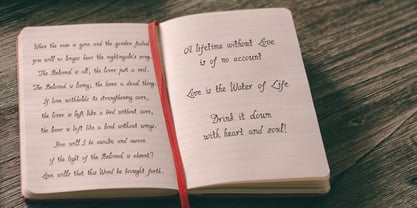 When the rose is gone and the garden faded
you will no longer hear the nightingale's song.
The Beloved is all; the lover just a veil.
The Beloved is living; the lover a dead thing.
If love withholds its strengthening care,
the lover is left like a bird without care,
the lover is left like a bird without wings.
How will I be awake and aware
if the light of the Beloved is absent?
Love wills that this Word be brought forth.
A lifetime without Love
is of no account
Love is the Water of Life
Drink it down
with heart and soul!